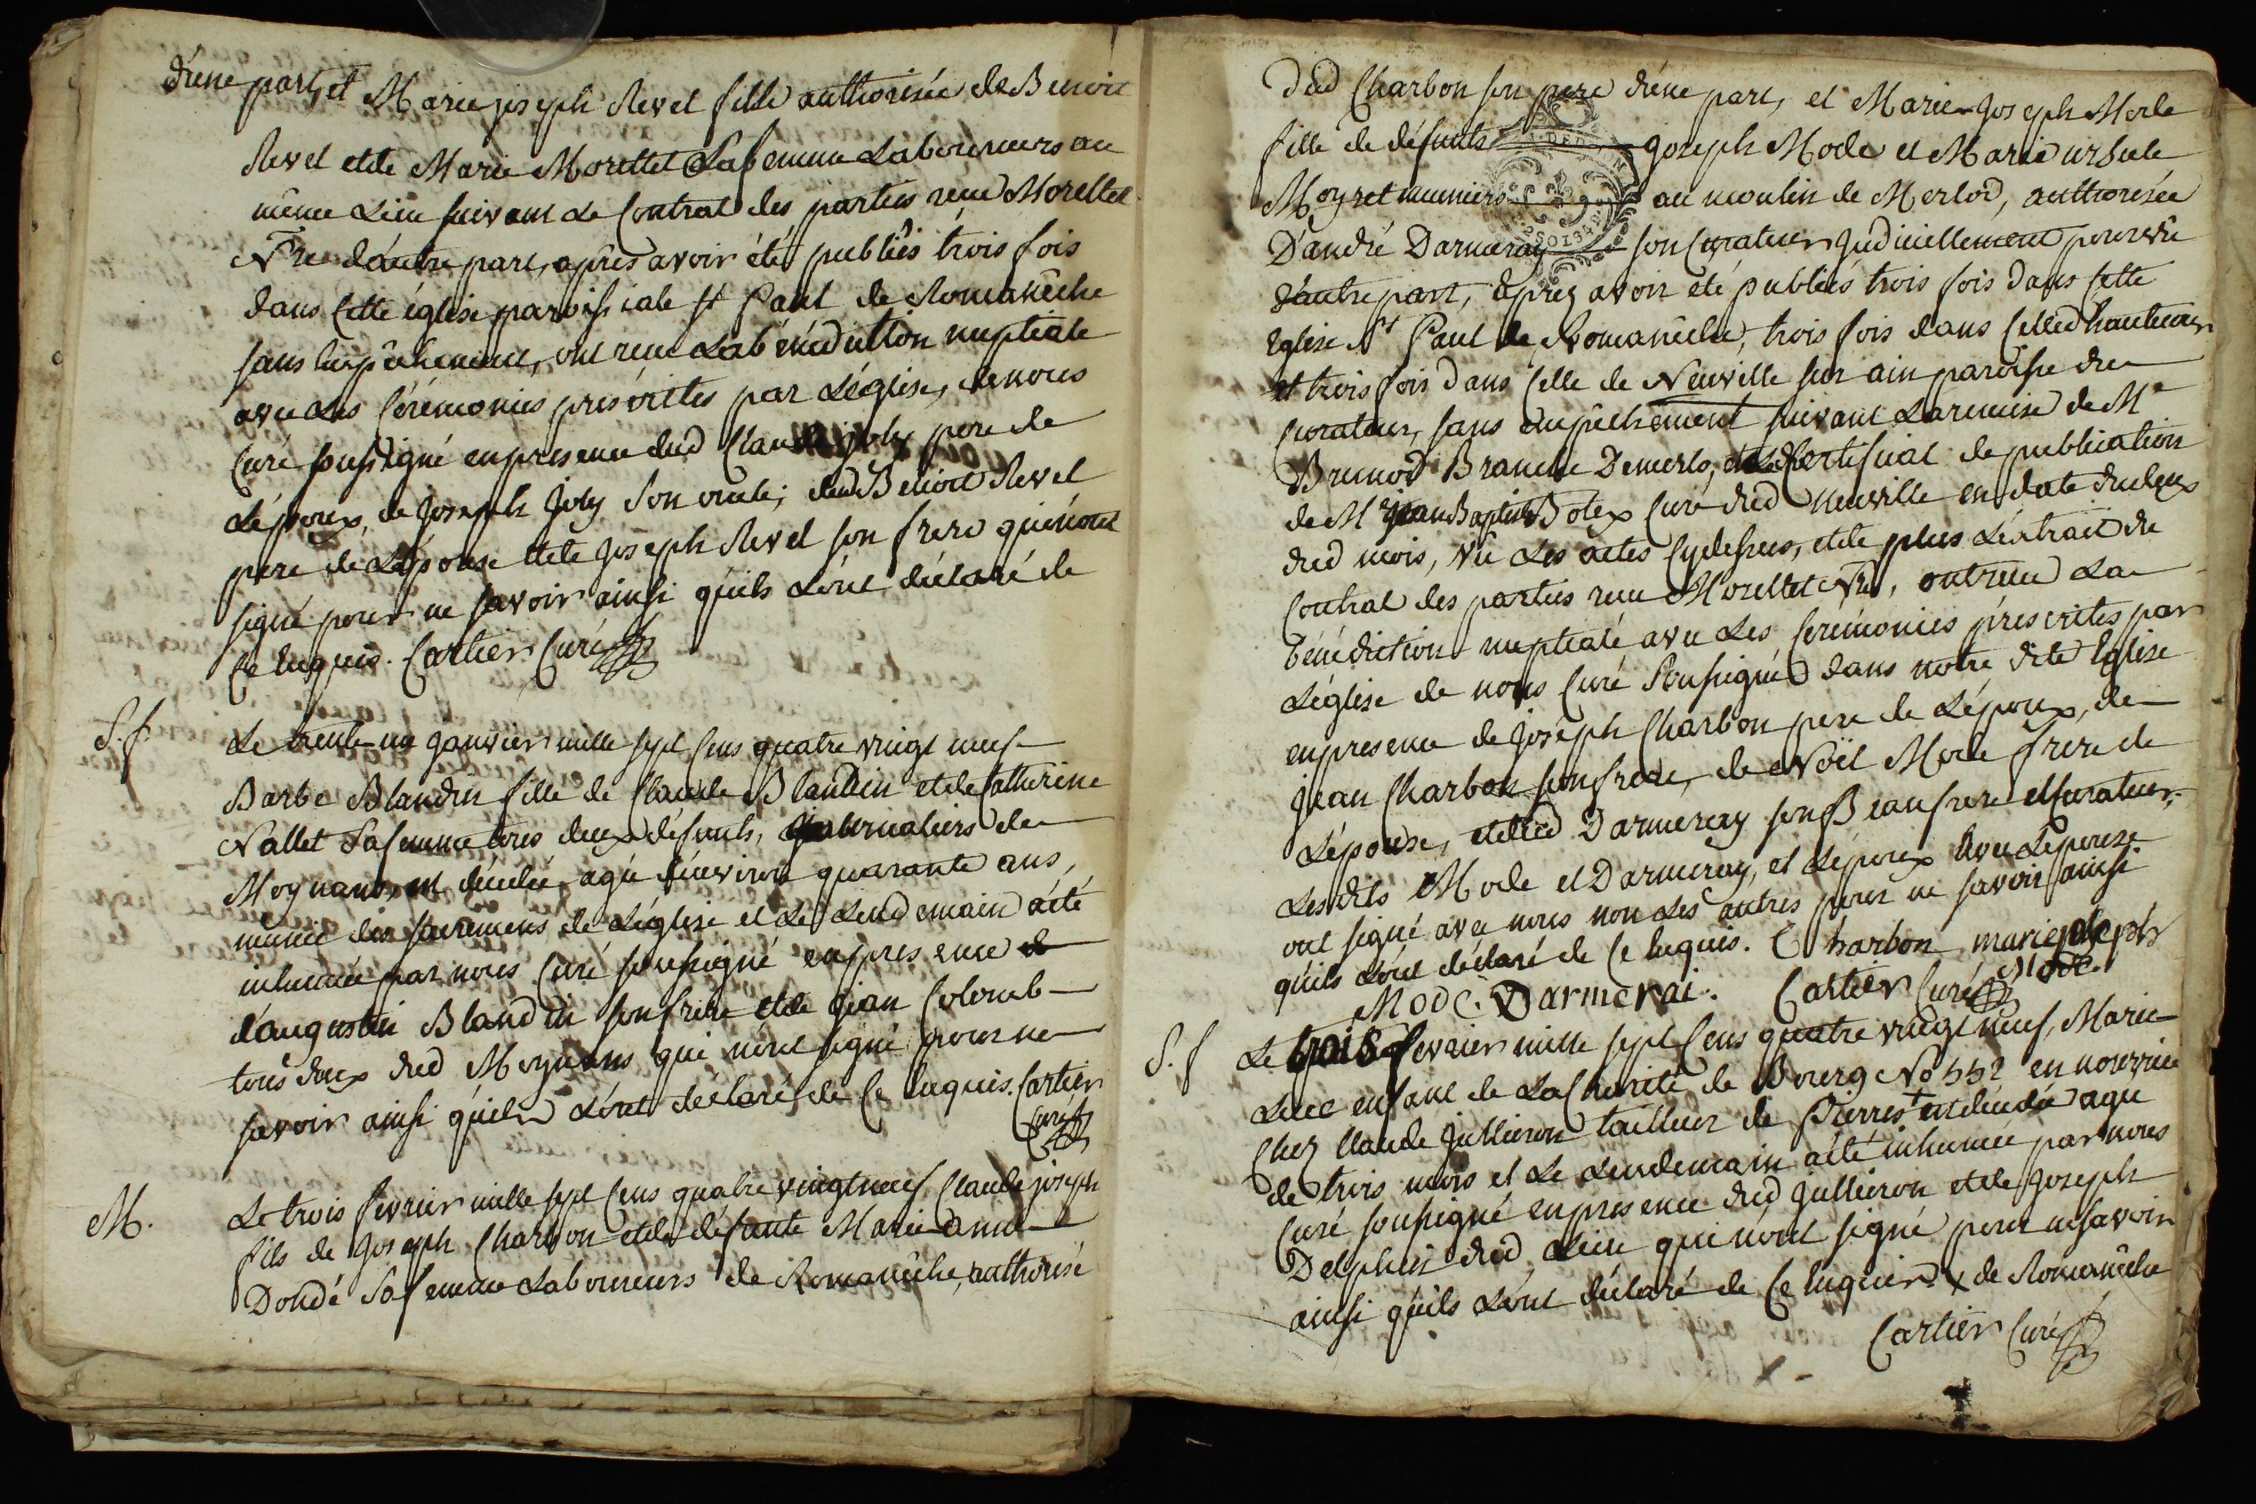 d'une part, et Marie joseph Revel fille authorisée de Benoit
Revel et de Marie Morellet Sa femme Laboureurs au
même Lieu suivant Le Contrat des parties reçu Morellet
Nre d'autre part, après avoir été publiés trois fois
dans Cette église paroissiale St Paul de Romanêche
sans Empêchement, ont reçu La bénédiction nuptiale
avec Les Cérémonies préscrittes par L'église, de nous
Curé soussigné en presence dud Claude joly pere de
L'époux, de joseph joly Son oncle, dud Benoit Revel
pere de L'épouse et de joseph Revel son frere qui n'ont
signé pour ne savoir ainsi qu'ils L'ont déclaré de
Ce Enquis. Cartier Curé
S. f. Le trente un janvier mille sept Cens quatre vingt neuf
Barbe Blandin fille de Claude Blandin et de Catherine
Nallet Sa femme tous deux défunts, de
Moynans, est décédée agée d'environ quarante ans,
munie des sacremens de L'église et Le Lendemain a été
inhumée par nous Curé soussigné en presence de
d'augustin Blandin son frere et de jean Colomb
tous deux dud Moynans qui n'ont signé pour ne
savoir ainsi qu'ils L'ont déclaré de Ce Enquis. Cartier
Curé
M. Le trois fevrier mille sept Cens quatre vingt neuf Claude joseph
fils de joseph Charbon et de défunte Marie anne
Dondé Sa femme Laboureurs de Romanêche, authorisé
dud Charbon son pere d'une part, et Marie-joseph Mode
fille de défunts joseph Mode et Marie ursule
Moyret muniers au moulin de Merlod, authorisée
D'andré Darmeray son Curateur judiciellement pourvû
d'autre part, après avoir été publiés trois fois dans Cette
Eglise St Paul de Romanêche, trois fois dans Celle d'hautecour
et trois fois dans Celle de Neuville sur ain paroisse du
Curateur, sans empêchement suivant La remise de Mr
Brunod Branche Demerlo, et Le Certificat de publication
de Mr jean Baptiste Botex Curé dud Neuville en date du deux
dud mois, Vû Les actes Cydessus, et de plus L'extrait du
Contrat des parties reçu Morellet Nre, ont reçu La
bénédiction nuptiale avec Les Cerémonies préscrites par
L'église de nous Curé Soussigné dans notre dite Eglise
en presence de joseph Charbon pere de L'époux, de
jean Charbon son frere, de Noël Mode frere de
L'épouse, et dud Darmeray son Beaufrere et Curateur,
Les dits Mode et Darmeray, et L'époux avec L'épouse
ont signé avec nous non Les autres pour ne savoir ainsi
qu'ils L'ont déclaré de Ce Enquis. C harbon marie joseph
Mode
Mode. Darmerai. Cartier Curé
S. f Le trois fevrier mille sept Cens quatre vingt neuf, Marie
Luce enfant de La Charité de Bourg No 552 en nourrice
Chez Claude jullieron tailleur de Pierres + est décédée agée
de trois mois et Le Lendemain a été inhumée par nous
Curé soussigné en presence dud jullieron et de joseph
Delphin dud Lieu qui n'ont signé pour ne savoir
ainsi qu'ils L'ont déclaré de Ce Enquis. + de Romanêche
Cartier Curé